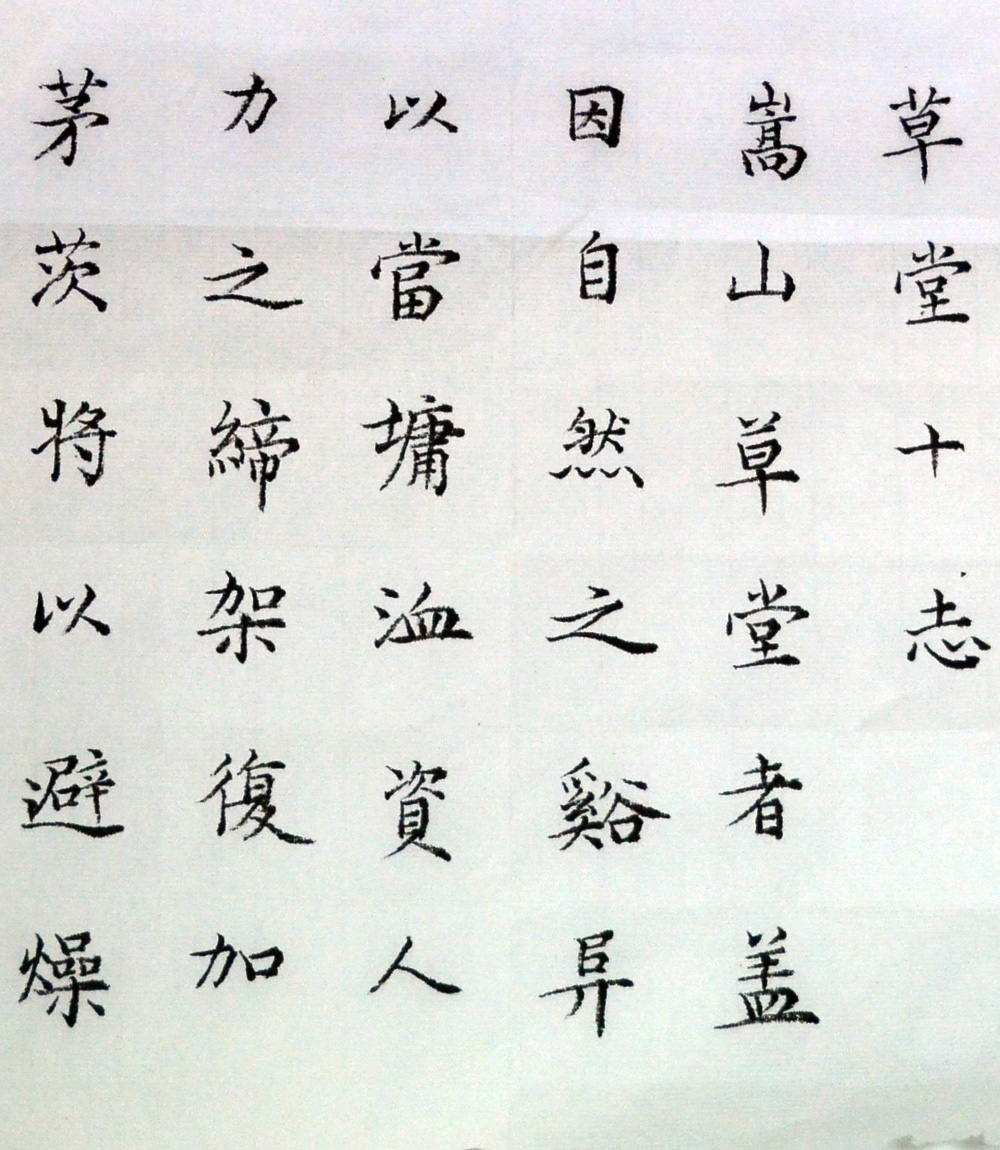 草堂十志
嵩山草堂者盖
因自然之谿阜
以當墉洫資人
力之締架復加
茅茨将以避燥